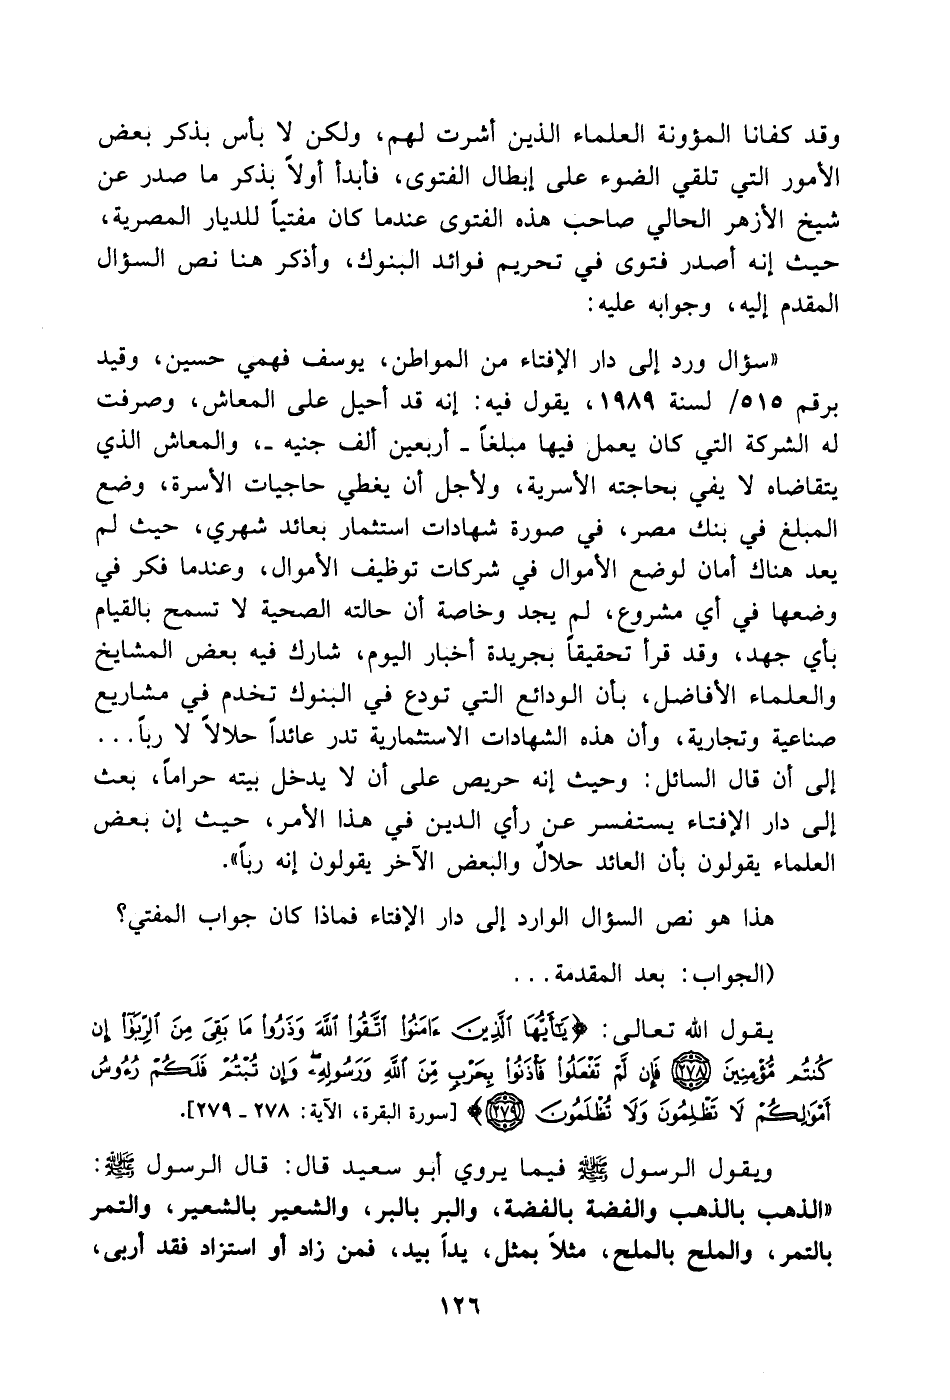 وقد كفانا المؤونة العلماء الذين أشرت لهم، ولكن لا بأس بذكر بعض
الأمور التي تلقي الضوء على إبطال الفتوى، فأبدأ أولاً بذكر ما صدر عن
شيخ الأزهر الحالي صاحب هذه الفتوى عندما كان مفتياً للديار المصرية،
حيث إنه أصدر فتوى في تحريم فوائد البنوك، وأذكر هنا نص السؤال
المقدم إليه، وجوابه عليه:
«سؤال ورد إلى دار الإفتاء من المواطن، يوسف فهمي حسين، وقيد
برقم ٥١٥/ لسنة ١٩٨٩، يقول فيه: إنه قد أحيل على المعاش، وصرفت
له الشركة التي كان يعمل فيها مبلغاً ـ أربعين ألف جنيه ـ، والمعاش الذي
يتقاضاه لا يفي بحاجته الأسرية، ولأجل أن يغطي حاجيات الأسرة، وضع
المبلغ في بنك مصر، في صورة شهادات استثمار بعائد شهري، حيث لم
يعد هناك أمان لوضع الأموال في شركات توظيف الأموال، وعندما فكر في
وضعها في أي مشروع، لم يجد وخاصة أن حالته الصحية لا تسمح بالقيام
بأي جهد، وقد قرأ تحقيقاً بجريدة أخبار اليوم، شارك فيه بعض المشايخ
والعلماء الأفاضل، بأن الودائع التي تودع في البنوك تخدم في مشاريع
صناعية وتجارية، وأن هذه الشهادات الاستثمارية تدر عائداً حلالاً لا رباً...
إلى أن قال السائل: وحيث إنه حريص على أن لا يدخل بيته حراماً، بعث
إلى دار الإفتاء يستفسر عن رأي الدين في هذا الأمر، حيث إن بعض
العلماء يقولون بأن العائد حلالٌ والبعض الآخر يقولون إنه رباً».
هذا هو نص السؤال الوارد إلى دار الإفتاء فماذا كان جواب المفتي؟
(الجواب: بعد المقدمة...
يقول الله تعالى: ﴿يَٰٓأَيُّهَا ٱلَّذِينَ ءَامَنُوا۟ ٱتَّقُوا۟ ٱللَّهَ وَذَرُوا۟ مَا بَقِىَ مِنَ ٱلرِّبَوٰٓا۟ إِن
كُنتُم مُّؤْمِنِينَ ﴿٢٧٨﴾ فَإِن لَّمْ تَفْعَلُوا۟ فَأْذَنُوا۟ بِحَرْبٍ مِّنَ ٱللَّهِ وَرَسُولِهِۦۖ وَإِن تُبْتُمْ فَلَكُمْ رُءُوسُ
أَمْوَٰلِكُمْ لَا تَظْلِمُونَ وَلَا تُظْلَمُونَ ﴿٢٧٩﴾﴾ [سورة البقرة، الآية: ٢٧٨ ـ ٢٧٩].
ويقول الرسول ﷺ فيما يروي أبو سعيد قال: قال الرسول ﷺ:
«الذهب بالذهب والفضة بالفضة، والبر بالبر، والشعير بالشعير، والتمر
بالتمر، والملح بالملح، مثلاً بمثل، يداً بيد، فمن زاد أو استزاد فقد أربى،
١٢٦